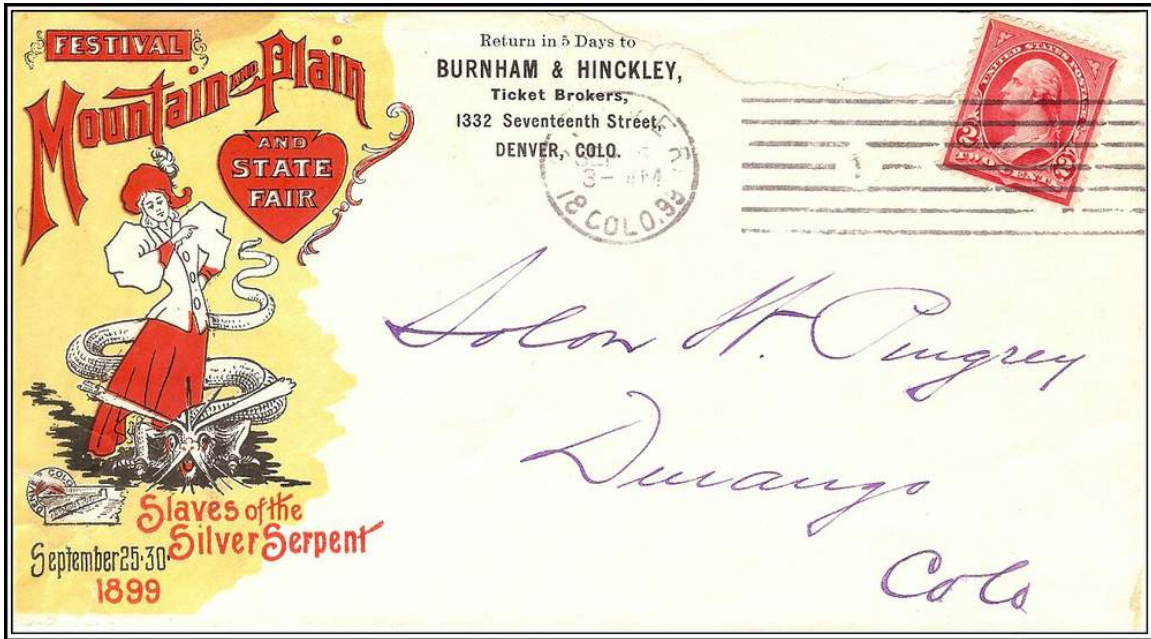 FESTIVAL
Mountain AND Plain
AND
STATE
FAIR
Slaves of the
Silver Serpent
September 25-30-
1899
DENVER COLO
Return in 5 Days to
BURNHAM & HINCKLEY,
Ticket Brokers,
1332 Seventeenth Street,
DENVER, COLO.
DENVER
SEP
3- AM
18 COLO. 99
UNITED STATES POSTAGE
2 2
TWO CENTS
Solon H. Pingrey
Durango
Colo